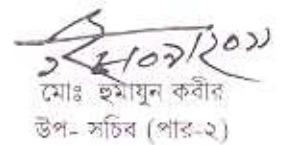 মোঃ হুমায়ুন কবীর
উপ- সচিব (পার-২)